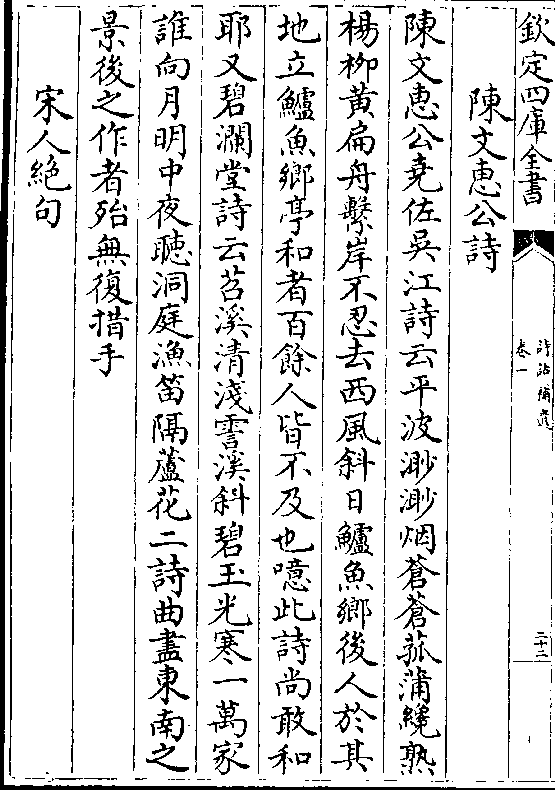 欽定四庫全書
詩話補遺
卷一
二十二
陳文惠公詩
陳文惠公堯佐吳江詩云平波渺渺烟蒼蒼菰蒲纔熟
楊柳黄扁舟繫岸不忍去西風斜日鱸魚鄉後人於其
地立鱸魚鄉亭和者百餘人皆不及也噫此詩尚敢和
耶又碧瀾堂詩云苕溪清淺霅溪斜碧玉光寒一萬家
誰向月明中夜聽洞庭漁笛隔蘆花二詩曲盡東南之
景後之作者殆無復措手
宋人絶句